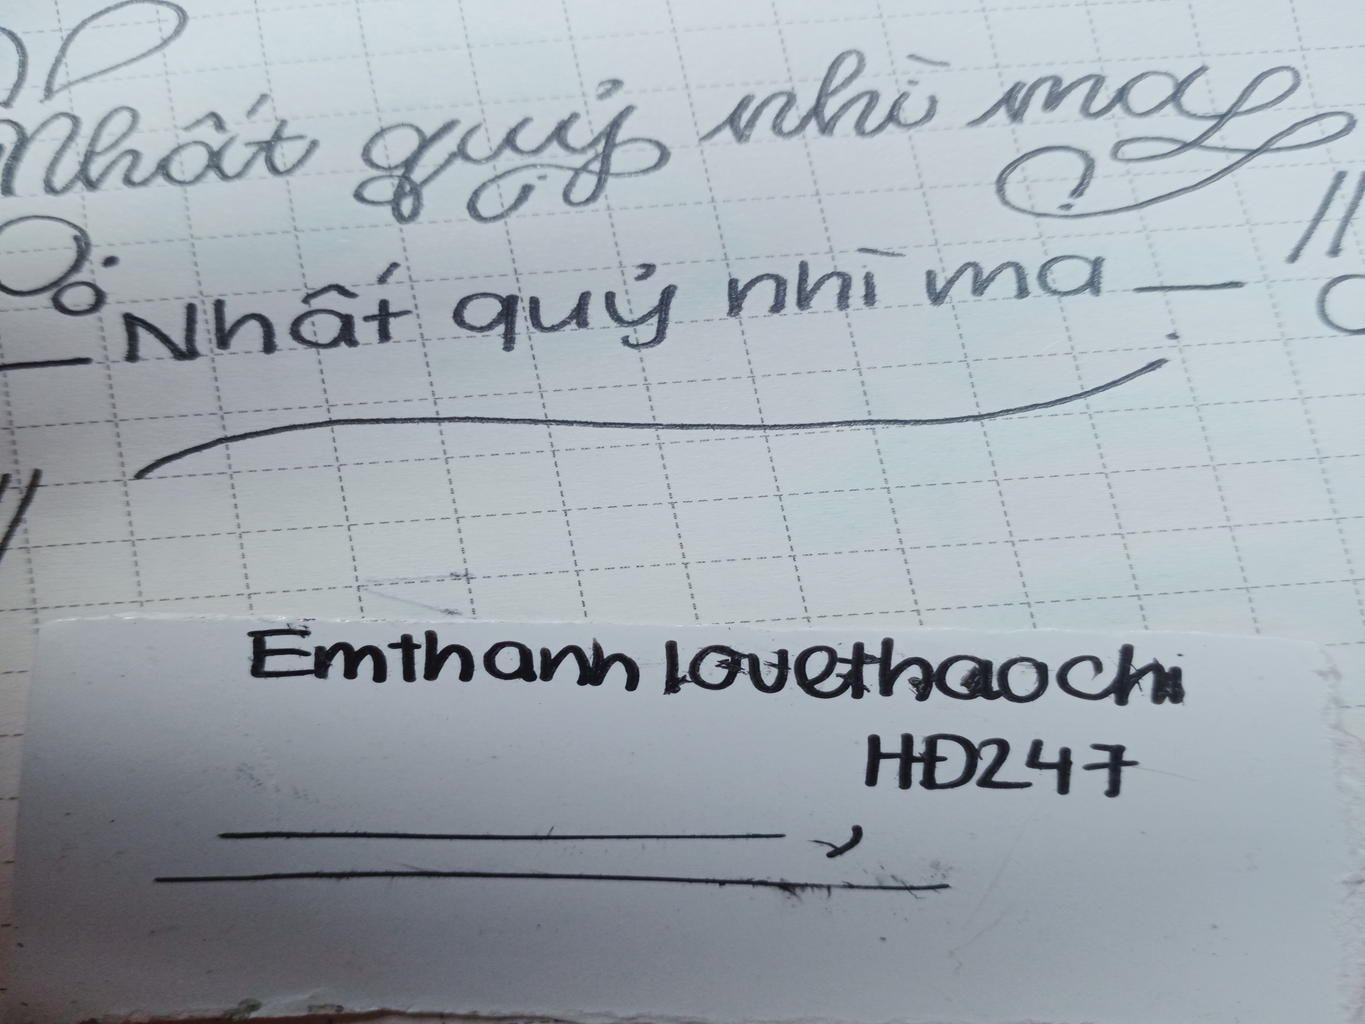 Nhất quỷ nhì ma
Nhất quỷ nhì ma
Emthanh lovethaochi
HĐ247